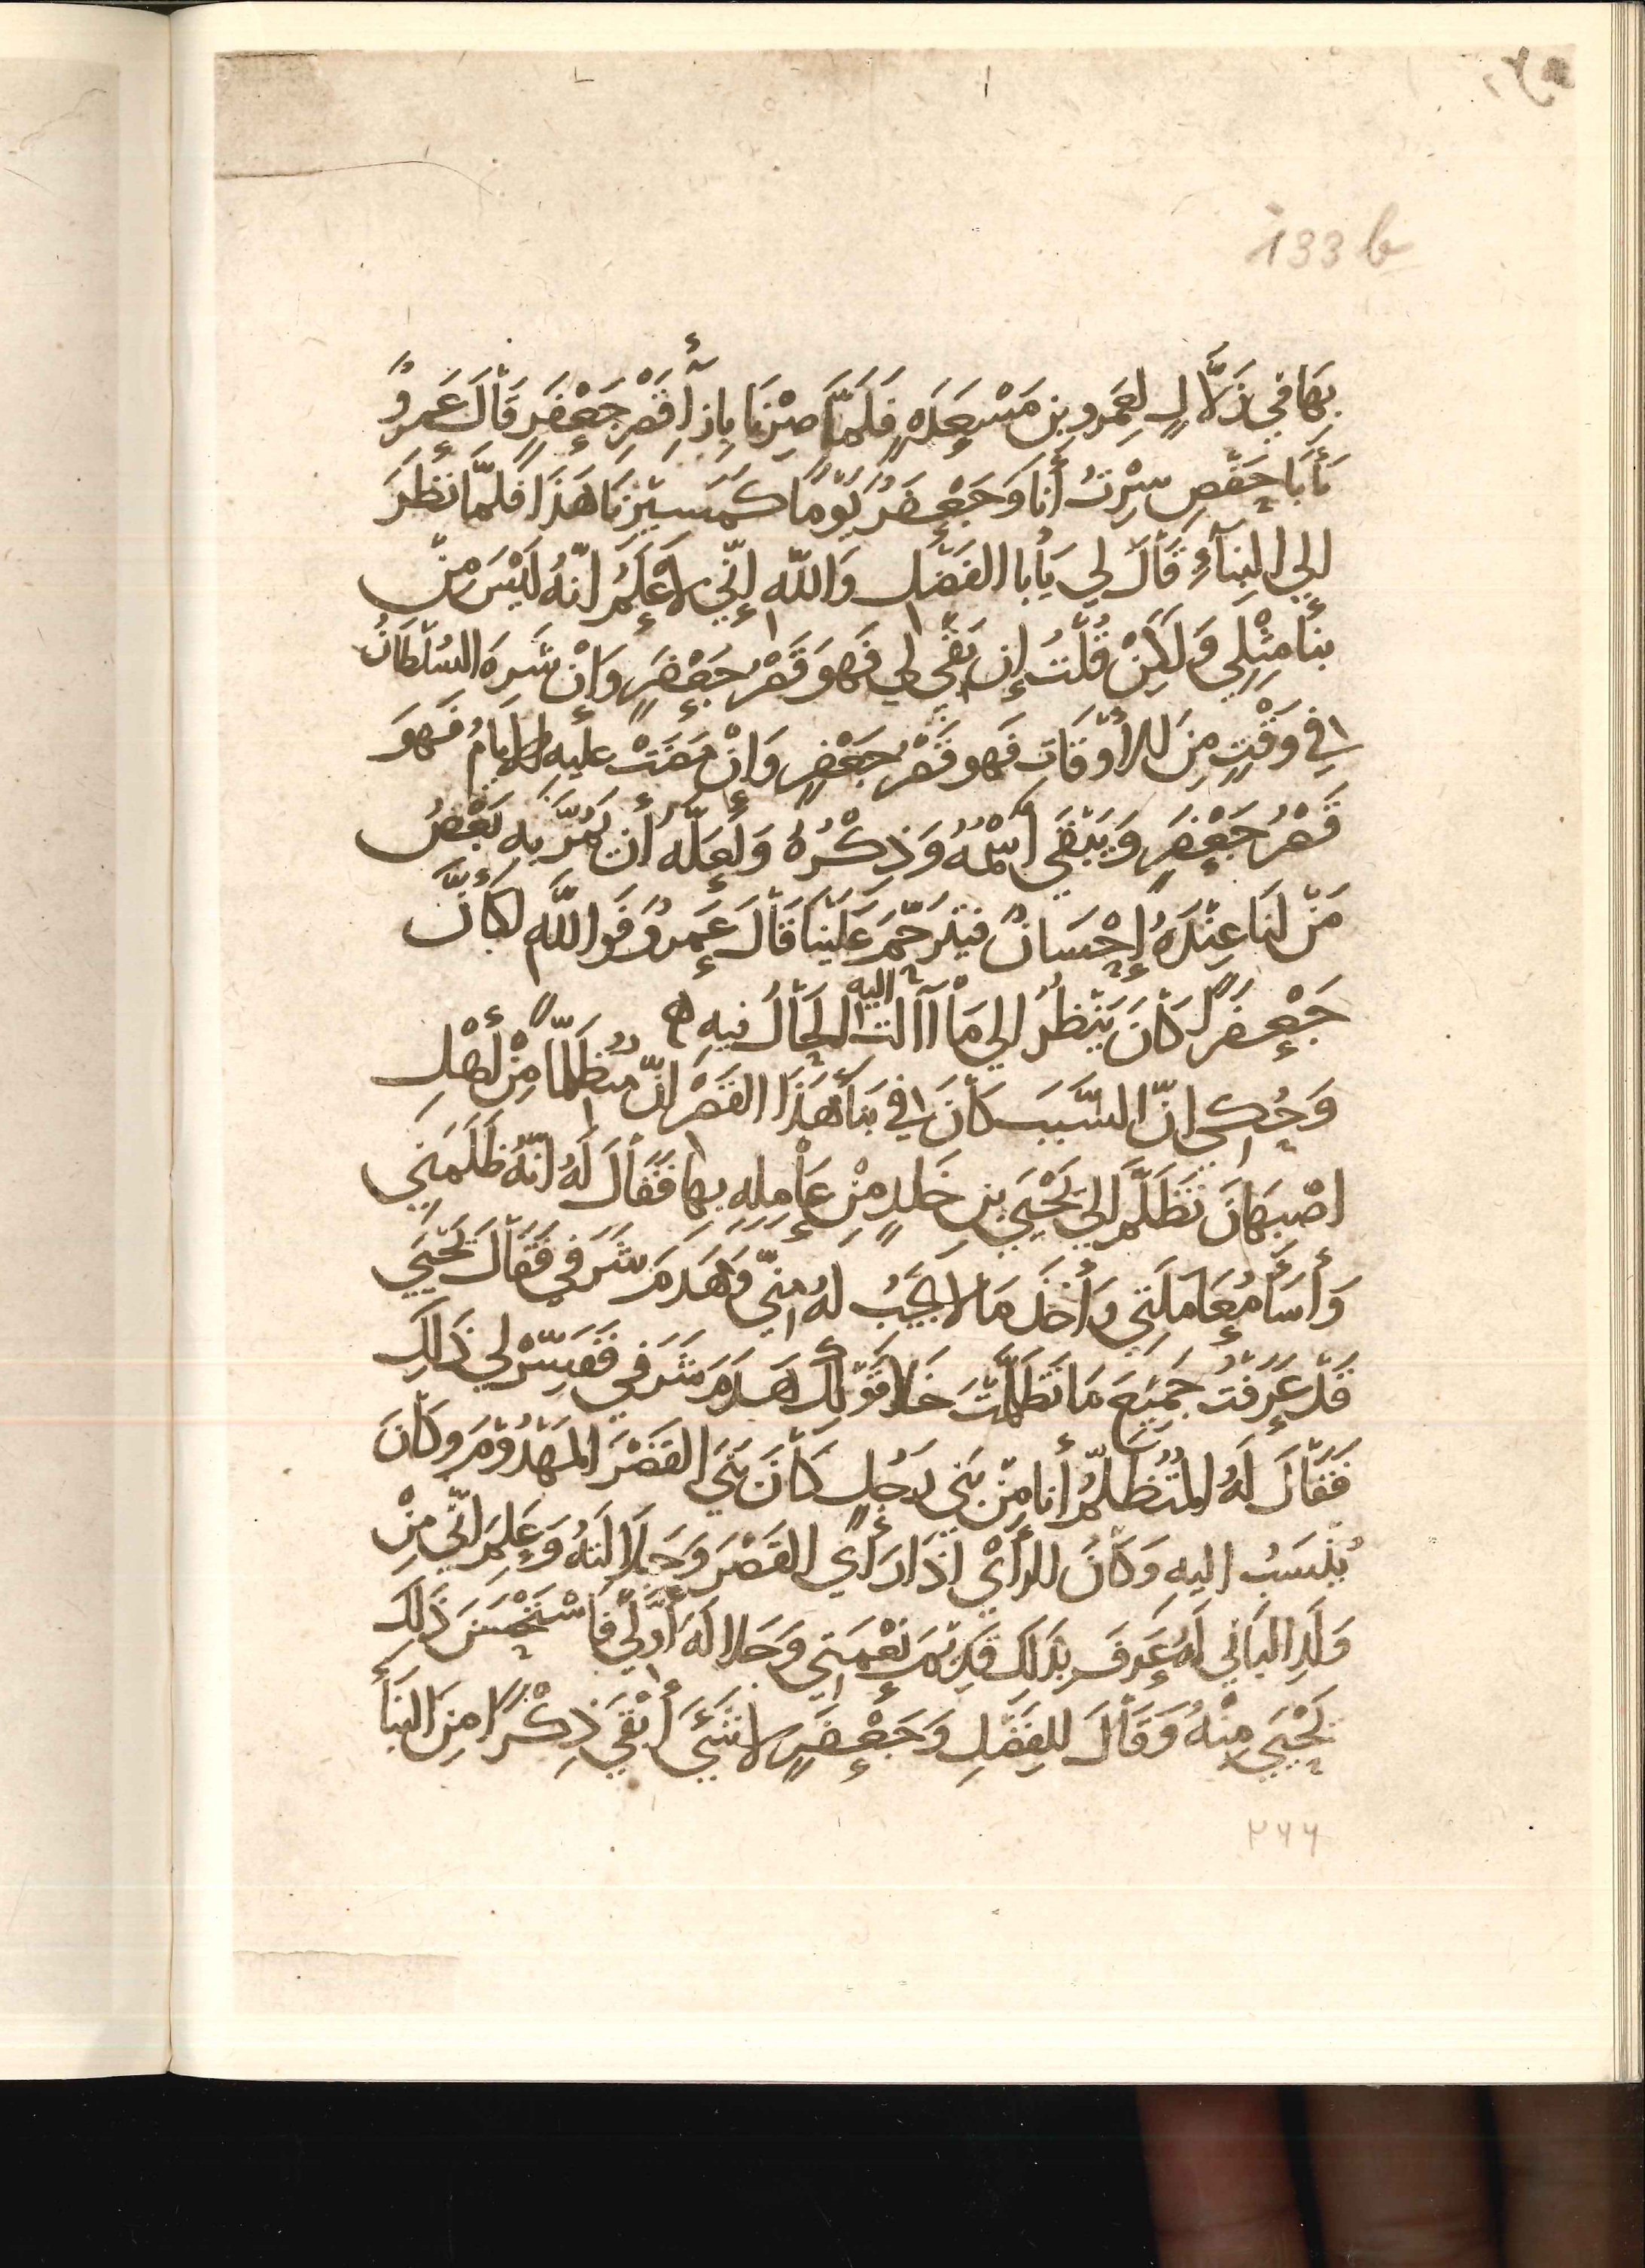 133 b
بِهَا فِي زَلَّالٍ لِعَمرو بن مَسْعَدَةٍ فَلَمَّا صِرْنَا بِازِاءِ قَصْرِ جَعْفَرٍ قَالَ عَمروٌ
يَأبَا حَفْصٍ سِرْتُ أنا وَجَعْفَرُ يَوْمًا كَمَسِيْرِنَا هَذَا فَلمَّا نَظَرَ
الي البِنَآءِ قَالَ لِي يَأبا الفَضْل وَاللّه إنّي لَأعْلَمُ انّهُ لَيْسَ مِنْ
بِنَأ مِثْلِي وَلَكِنْ قُلْتُ إن بَقَي لِي فَهوَ قَصْرُ جَعْفَرٍ وَإنْ شَرِهَ السُلْطَانُ
في وَقْتٍ مِنَ الأوْقَاتِ فَهو قَصْرُ جَعْفرٍ وَانْ مَضَتْ عليهِ الأيامُ فَهوَ
قَصْرُ جَعْفَرٍ وَيَبْقَي اسْمُهُ وَذِكْرُهُ وَلَعَلّه أن يَمُرَّ بِهِ بَعْضُ
مَنْ لَنَا عِنْدَهُ إحْسَانٌ فيتَرحَّمَ عَلَيْنا قَالَ عَمروٌ فَوَاللَّهِ لَكأنَّ
جَعْفَرًا كَانَ يَنْظُرُ الي مَا آلت اليه الحَالُ فيهِ ه
وَحُكِي انّ السَّبَبَ كَانَ في بَنَأ هَذَا القَصْرِ انّ مُتَظَلّمًا مِنْ أهْل
اصْبِهَانَ تَظَلَّمَ الي يَحْيَي بنِ خَلدٍ مِنْ عَامِلِهِ بِها فَقَالَ لَهُ انّهُ ظَلَمَنِي
وَأسَأَ مُعَامَلَتِي وأخَذَ مَا لا يَجِبُ لهُ مِنّي وَهَدَمَ شَرَفِي فَقَالَ يَحْيَي
قَدْ عَرَفْتُ جَمِيْعَ مَا تَظَلَّمْتَ خَلا قَوْلِك هَدَمَ شَرَفِي فَفَسِّرْ لِي ذَالِكَ
فَقَالَ لَهُ المُتَظلِّمُ أنا مِنْ بَنِي رَجُلٍ كَانَ بَنَي القَصْرَ المَهْدُوْمَ وكَانَ
يُنْسَبُ اليهِ وَكَانَ الرأَي اذَا رَأي القَصْرَ وَجَلَالَتهُ وَعَلِمَ انّي مِنْ
وَلَدِ البَانِي لَهُ عَرَفَ بذَلكَ قَدِيْمَ نِعْمَتِي وَجَلالَهَ أوّلِي فَاسْتَحْسَنَ ذَلِكَ
يَحْيَي مِنْهُ وَقَالَ لِلفَضْلِ وَجَعْفَرٍ لا شَيَْ أبْقَي ذِكْرًا مِنَ البِنَأ
٢٦٦